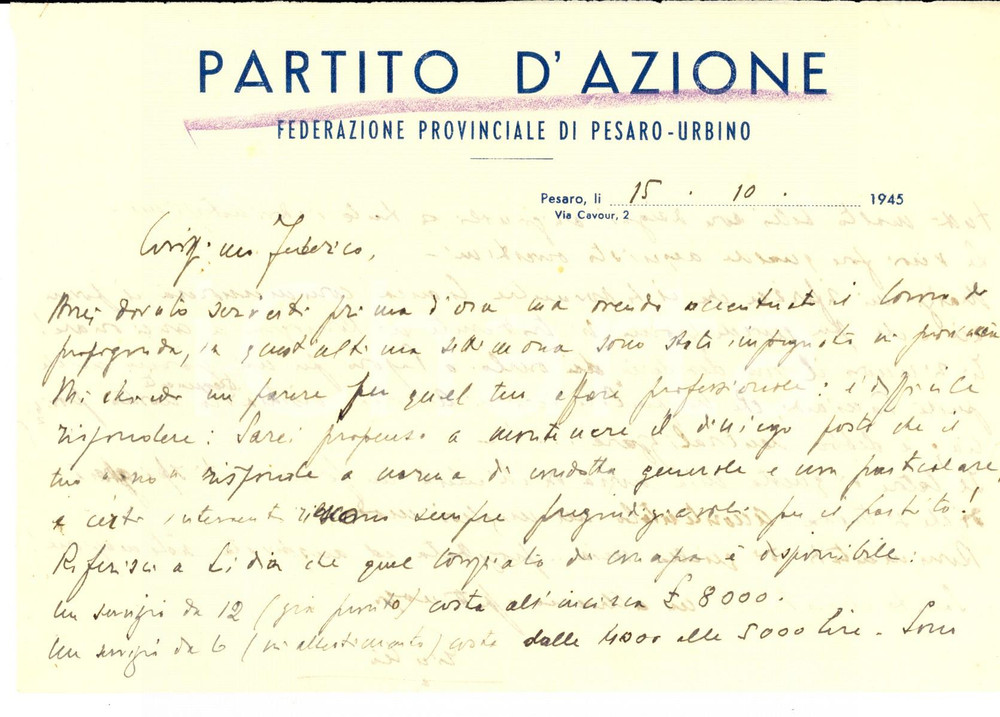 PARTITO D'AZIONE
FEDERAZIONE PROVINCIALE DI PESARO-URBINO
Pesaro, li 15 . 10 . 1945
Via Cavour, 2
mo Federico,
Avrei dovuto scriverti prima d'ora ma avendo accentuato il lavoro di
propaganda, in quest'ultima settimana sono stato impegnato in provincia
Mi chiedi un parere per quel tuo affare professionale: è difficile
rispondere: Sarei propenso a mantenere il diniego posto che il
tuo "no" risponde a norma di condotta generale e non particolare,
e certi interventi sempre pregiudizievoli per il partito!
Riferisci a Lidia che quel è disponibile:
Un servizio da 12 (già pronto) costa all'incirca £ 8000.
Un servizio da 6 (in allestimento) costa dalle 4000 alle 5000 lire. Sono